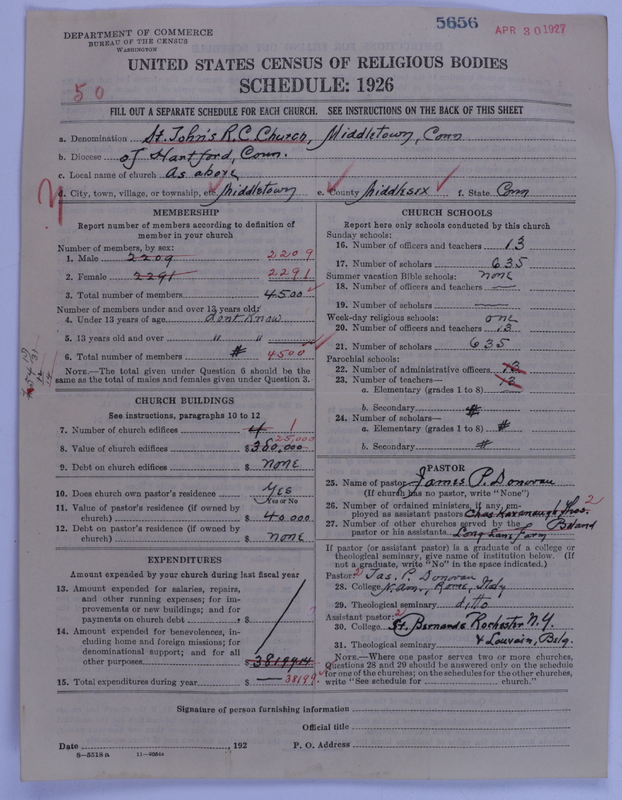 5656
APR 30 1927
DEPARTMENT OF COMMERCE
BUREAU OF THE CENSUS
WASHINGTON
UNITED STATES CENSUS OF RELIGIOUS BODIES
SCHEDULE: 1926
50
FILL OUT A SEPARATE SCHEDULE FOR EACH CHURCH. SEE INSTRUCTIONS ON THE BACK OF THIS SHEET
a. Denomination St. John's R.C. Church, Middletown, Conn
b. Diocese of Hartford, Conn.
c. Local name of church As above
d. City, town, village, or township, etc. Middletown e. County Middlesex f. State Conn
MEMBERSHIP
Report number of members according to definition of member in your church
Number of members, by sex:
1. Male 2209 2209
2. Female 2291 2291
3. Total number of members 4500
Number of members under and over 13 years old:
4. Under 13 years of age Dont Know
5. 13 years old and over " "
6. Total number of members # 4500
NOTE.—The total given under Question 6 should be the same as the total of males and females given under Question 3.
CHURCH BUILDINGS
See instructions, paragraphs 10 to 12
7. Number of church edifices 4 1
25,000
8. Value of church edifices $ 350,000
9. Debt on church edifices $ none
10. Does church own pastor's residence Yes
Yes or No
11. Value of pastor's residence (if owned by church) $ 40,000
12. Debt on pastor's residence (if owned by church) $ none
EXPENDITURES
Amount expended by your church during last fiscal year
13. Amount expended for salaries, repairs, and other running expenses; for improvements or new buildings; and for payments on church debt $
14. Amount expended for benevolences, including home and foreign missions; for denominational support; and for all other purposes 3819914
15. Total expenditures during year $ 38199
CHURCH SCHOOLS
Report here only schools conducted by this church
Sunday schools:
16. Number of officers and teachers 13
17. Number of scholars 635
Summer vacation Bible schools: none
18. Number of officers and teachers —
19. Number of scholars —
Week-day religious schools: one
20. Number of officers and teachers 13
21. Number of scholars 635
Parochial schools:
22. Number of administrative officers 13
23. Number of teachers— 13
a. Elementary (grades 1 to 8)
b. Secondary #
24. Number of scholars—
a. Elementary (grades 1 to 8) #
b. Secondary #
PASTOR
25. Name of pastor James P. Donovan
(If church has no pastor, write "None")
26. Number of ordained ministers, if any, employed as assistant pastors Chas Kavanaugh Thos. 2
27. Number of other churches served by the pastor or his assistants Long Lane Farm
If pastor (or assistant pastor) is a graduate of a college or theological seminary, give name of institution below. (If not a graduate, write "No" in the space indicated.)
Pastor: Jas. P. Donovan
28. College N. Am., Rome, Italy
29. Theological seminary ditto
Assistant pastor: 2
30. College St. Bernards Rochester N.Y.
31. Theological seminary & Louvain, Belg.
NOTE.—Where one pastor serves two or more churches, Questions 28 and 29 should be answered only on the schedule for one of the churches; on the schedules for the other churches, write "See schedule for church."
Signature of person furnishing information
Official title
Date , 192 P. O. Address
8—5518a